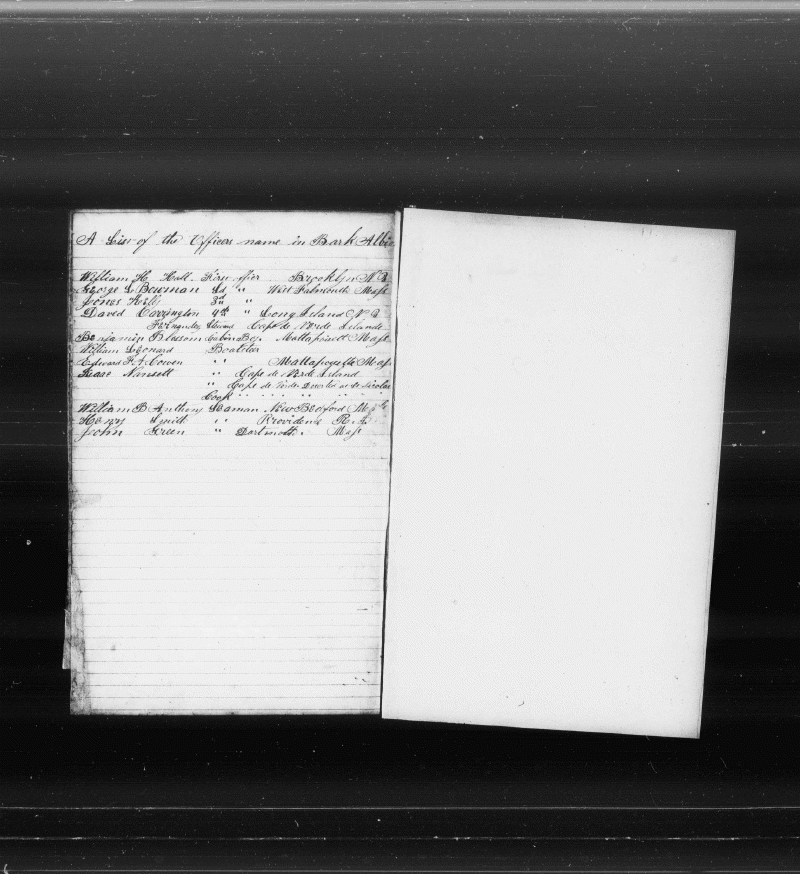 A List of the Officers name in Bark Albio
William H. Hall. First officer Brooklyn N.Y
George L Bowman 2d " West Falmouth Mass
Jones Kelly 3d "
David Covington 4th " Long Island N.Y
Fernandes Steward Cape de Verde Islands
Benjamin Blossom Cabin Boy. Mattapoisett Mass
William Leonard Boatster
Edward Cowen " " Mattapoisette Mass
Isaac " Cape de Verde Island
" Cape de Verde Deserted at St Nicolas
Cook " " " " "
William B Anthony Seaman New Bedford
Henry Smith " " Providence R.I.
John Green " Dartmouth. Mass